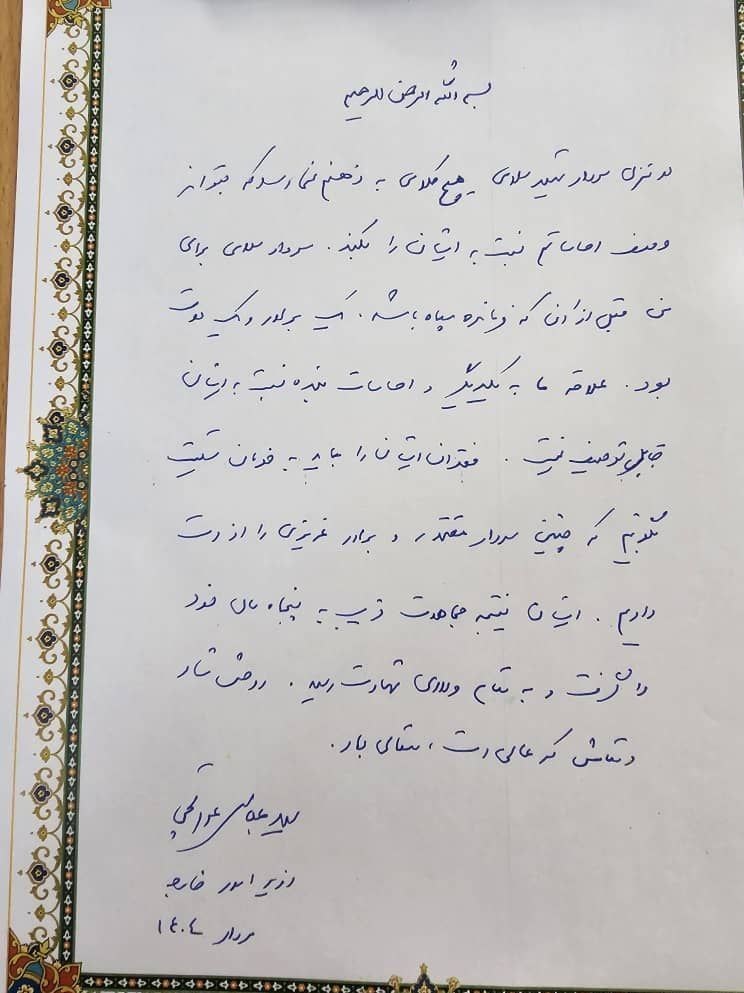 بسم الله الرحمن الرحیم
در منزل سردار شهید سلامی هیچ کلامی به ذهنم نمی‌رسد که بتواند
وصف احساساتم نسبت به ایشان را بکند. سردار سلامی برای
من قبل از آن که فرمانده سپاه باشد، یک برادر و یک دوست
بود. علاقه ما به یکدیگر و احساسات بنده نسبت به ایشان
قابل توصیف نیست. فقدان ایشان را باید به خودمان تسلیت
بگوییم که چنین سردار مقتدر و برادر عزیزی را از دست
دادیم. ایشان نتیجه مجاهدت قریب به پنجاه سال خود
را گرفت و به مقام والای شهادت رسید. روحش شاد
و مقامش که عالی است، متعالی باد.
سید عباس عراقچی
وزیر امور خارجه
مرداد ۱۴۰۴